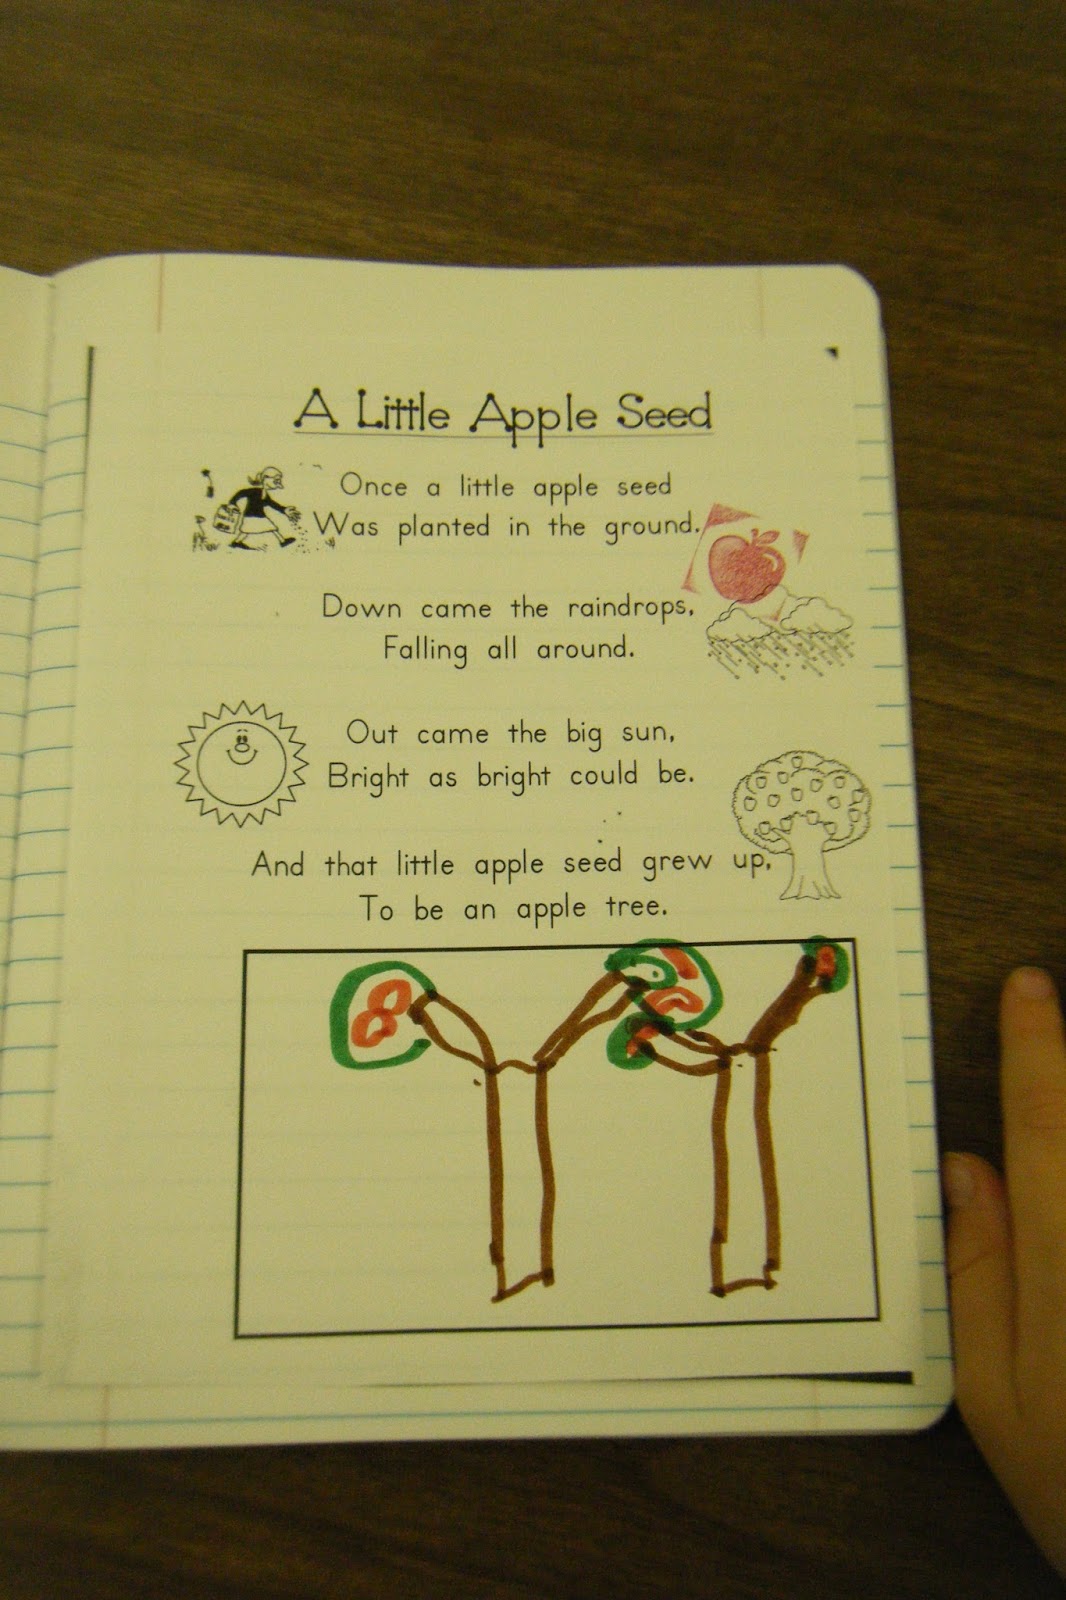 A Little Apple Seed
Once a little apple seed
Was planted in the ground.
Down came the raindrops,
Falling all around.
Out came the big sun,
Bright as bright could be.
And that little apple seed grew up,
To be an apple tree.